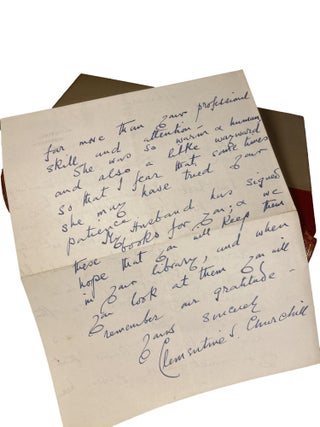 far more than your professional
skill and attention -
She was so warm & human
and also a little wayward
so that I fear that sometimes
she may have tried your
patience.
My Husband has signed
these books for you; & we
hope that you will keep them
in your library, and when
you look at them you will
remember our gratitude -
Yours sincerely
Clementine S. Churchill